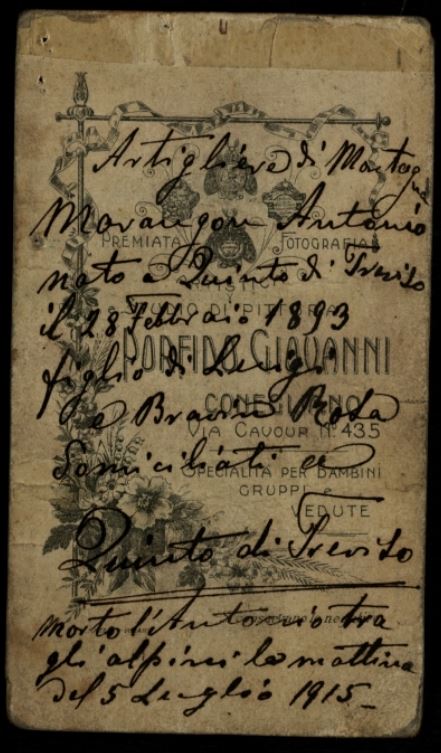 Artigliere di Montagna
Marangon Antonio
PREMIATA FOTOGRAFIA
nato a Quinto di Treviso
STUDIO DI PITTURA
il 28 Febbraio 1893
PORFIDO GIOVANNI
figlio di Luigi
CONEGLIANO
e Rosa
VIA CAVOUR N. 435
Domiciliati a
SPECIALITÀ PER BAMBINI
GRUPPI e
VEDUTE
Quinto di Treviso
morto l'Antonio tra
gli alpini la mattina
del 5 Luglio 1915